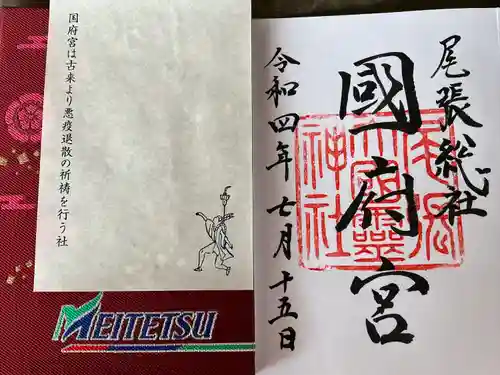 尾張総社
國府宮
令和四年七月十五日
国府宮は古来より悪疫退散の祈祷を行う社
MEITETSU